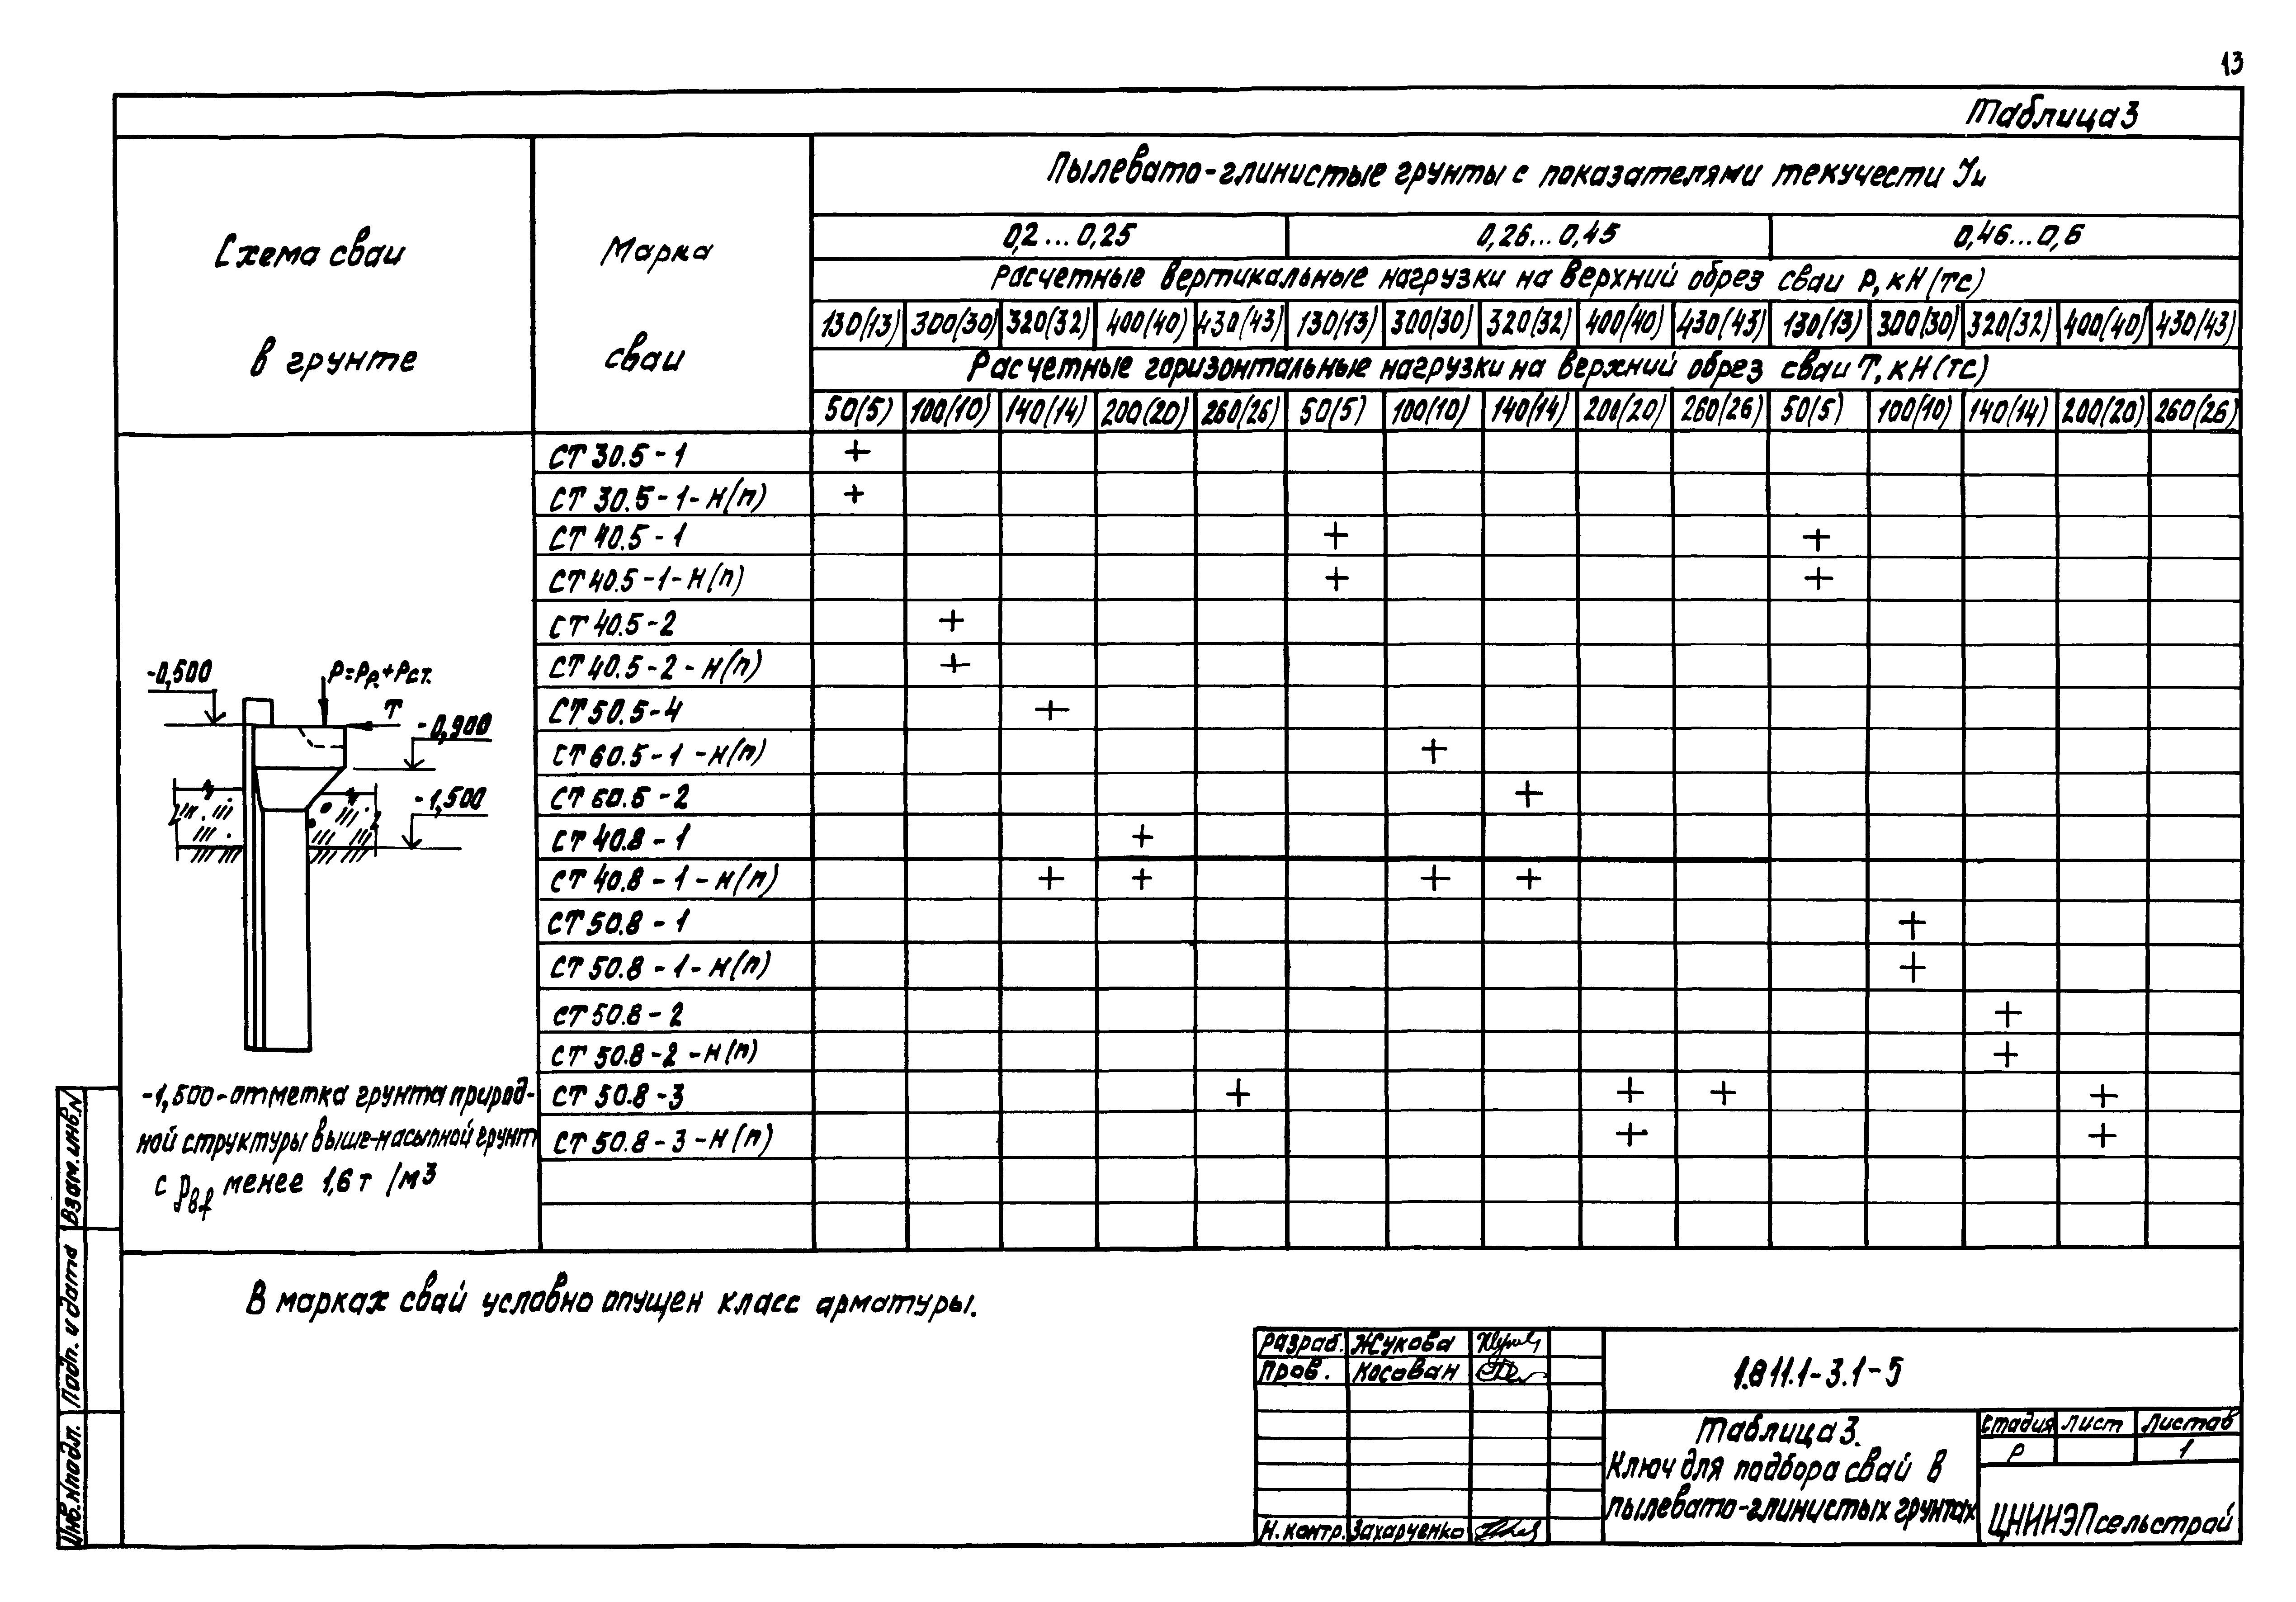 13
Таблица 3
Схема сваи
в грунте
Марка
сваи
Пылевато-глинистые грунты с показателями текучести IL
0,2...0,25 0,26...0,45 0,46...0,6
Расчетные вертикальные нагрузки на верхний обрез сваи P, кН (тс)
130(13) 300(30) 320(32) 400(40) 430(43) 130(13) 300(30) 320(32) 400(40) 430(43) 130(13) 300(30) 320(32) 400(40) 430(43)
Расчетные горизонтальные нагрузки на верхний обрез сваи T, кН (тс)
50(5) 100(10) 140(14) 200(20) 260(26) 50(5) 100(10) 140(14) 200(20) 260(26) 50(5) 100(10) 140(14) 200(20) 260(26)
СТ 30.5-1 +
СТ 30.5-1-Н(п) +
СТ 40.5-1 + +
СТ 40.5-1-Н(п) + +
СТ 40.5-2 +
СТ 40.5-2-Н(п) +
СТ 50.5-4 +
СТ 60.5-1-Н(п) +
СТ 60.5-2 +
СТ 40.8-1 +
СТ 40.8-1-Н(п) + + + +
СТ 50.8-1 +
СТ 50.8-1-Н(п) +
СТ 50.8-2 +
СТ 50.8-2-Н(п) +
СТ 50.8-3 + + + +
СТ 50.8-3-Н(п) + +
-0,500
P=Pр.+Pст.
T
-0,900
-1,500
-1,500-отметка грунта природ-
ной структуры выше-насыпной грунт
с ρвf менее 1,6 т/м3
В марках свай условно опущен класс арматуры.
Взам.инв.N
Подп. и дата
Инв.Nподл.
Разраб. Жукова
Пров. Косован
Н.контр. Захарченко
1.811.1-3.1-5
Таблица 3.
Ключ для подбора свай в
пылевато-глинистых грунтах
Стадия Лист Листов
Р 1
ЦНИИЭПсельстрой